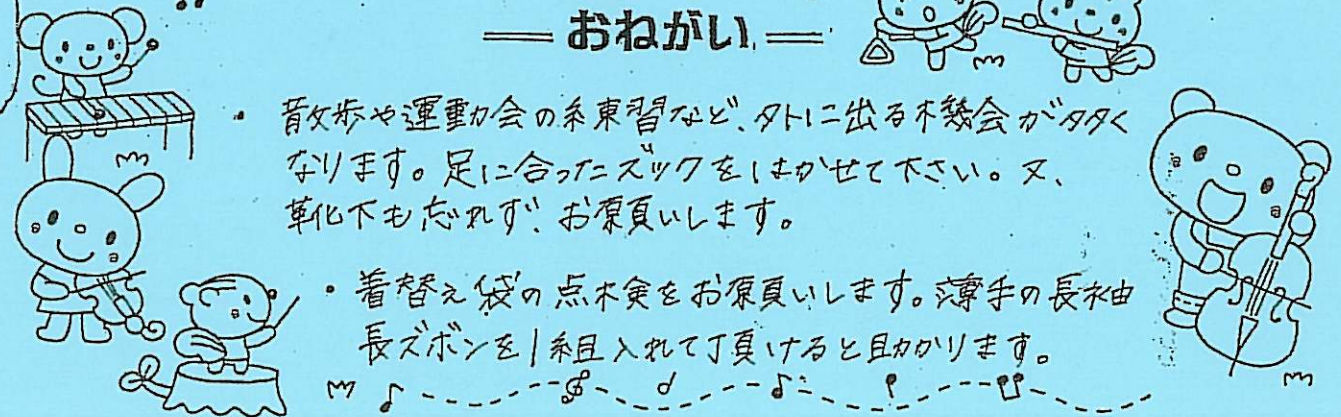 おねがい
・散歩や運動会の練習など、外に出る機会が多く
なります。足に合ったズックをはかせて下さい。又、
靴下も忘れず、お願いします。
・着替え袋の点検をお願いします。薄手の長袖
長ズボンを1組入れて頂けると助かります。